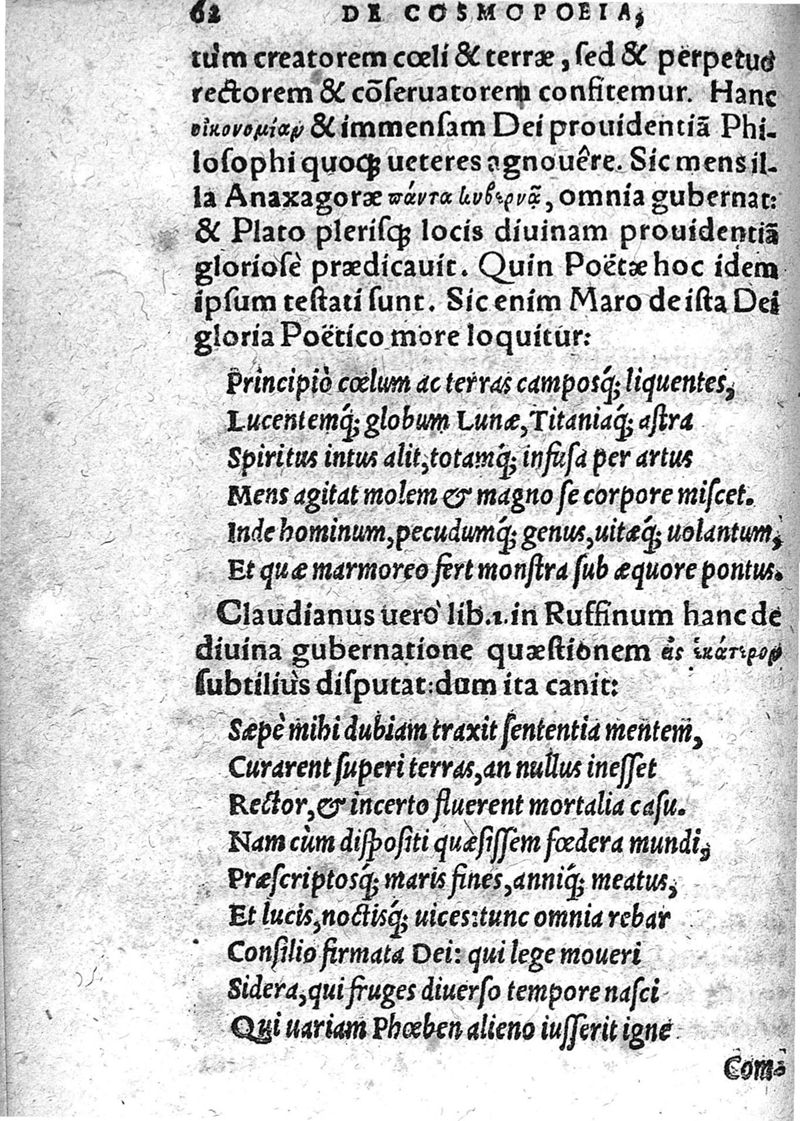 62 DE COSMOPOEIA,
tùm creatorem cœli & terræ, ſed & perpetuũ
rectorem & cōſeruatorem confitemur. Hanc
οἰκονομίαν & immenſam Dei prouidentiã Phi-
loſophi quoq; ueteres agnouêre. Sic mens il-
la Anaxagoræ πάντα κυβερνᾶ, omnia gubernat:
& Plato pleriſq; locis diuinam prouidentiã
glorioſè prædicauit. Quin Poëtæ hoc idem
ipſum teſtati ſunt. Sic enim Maro de iſta Dei
gloria Poëtico more loquitur:
Principiò cœlum ac terras camposq́; liquentes,
Lucentemq́; globum Lunæ, Titaniaq́; aſtra
Spiritus intus alit, totamq́; infuſa per artus
Mens agitat molem & magno ſe corpore miſcet.
Inde hominum, pecudumq́; genus, uitæq́; uolantum,
Et quæ marmoreo fert monſtra ſub æquore pontus.
Claudianus uerò lib.1. in Ruffinum hanc de
diuina gubernatione quæſtionem εἰς ἑκάτερον
ſubtiliùs diſputat: dum ita canit:
Sæpè mihi dubiam traxit ſententia mentem,
Curarent ſuperi terras, an nullus ineſſet
Rector, & incerto fluerent mortalia caſu.
Nam cùm diſpoſiti quæſiſſem fœdera mundi,
Præſcriptosq́; maris fines, anniq́; meatus,
Et lucis, noctisq́; uices: tunc omnia rebar
Conſilio firmata Dei: qui lege moueri
Sidera, qui fruges diuerſo tempore naſci
Qui uariam Phœben alieno iuſſerit igne
Com-